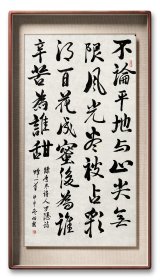 不論平地与山尖無
限風光盡被占采
得百花成蜜後為誰
辛苦為誰甜
唐末詩人羅隱詩
蜂一首